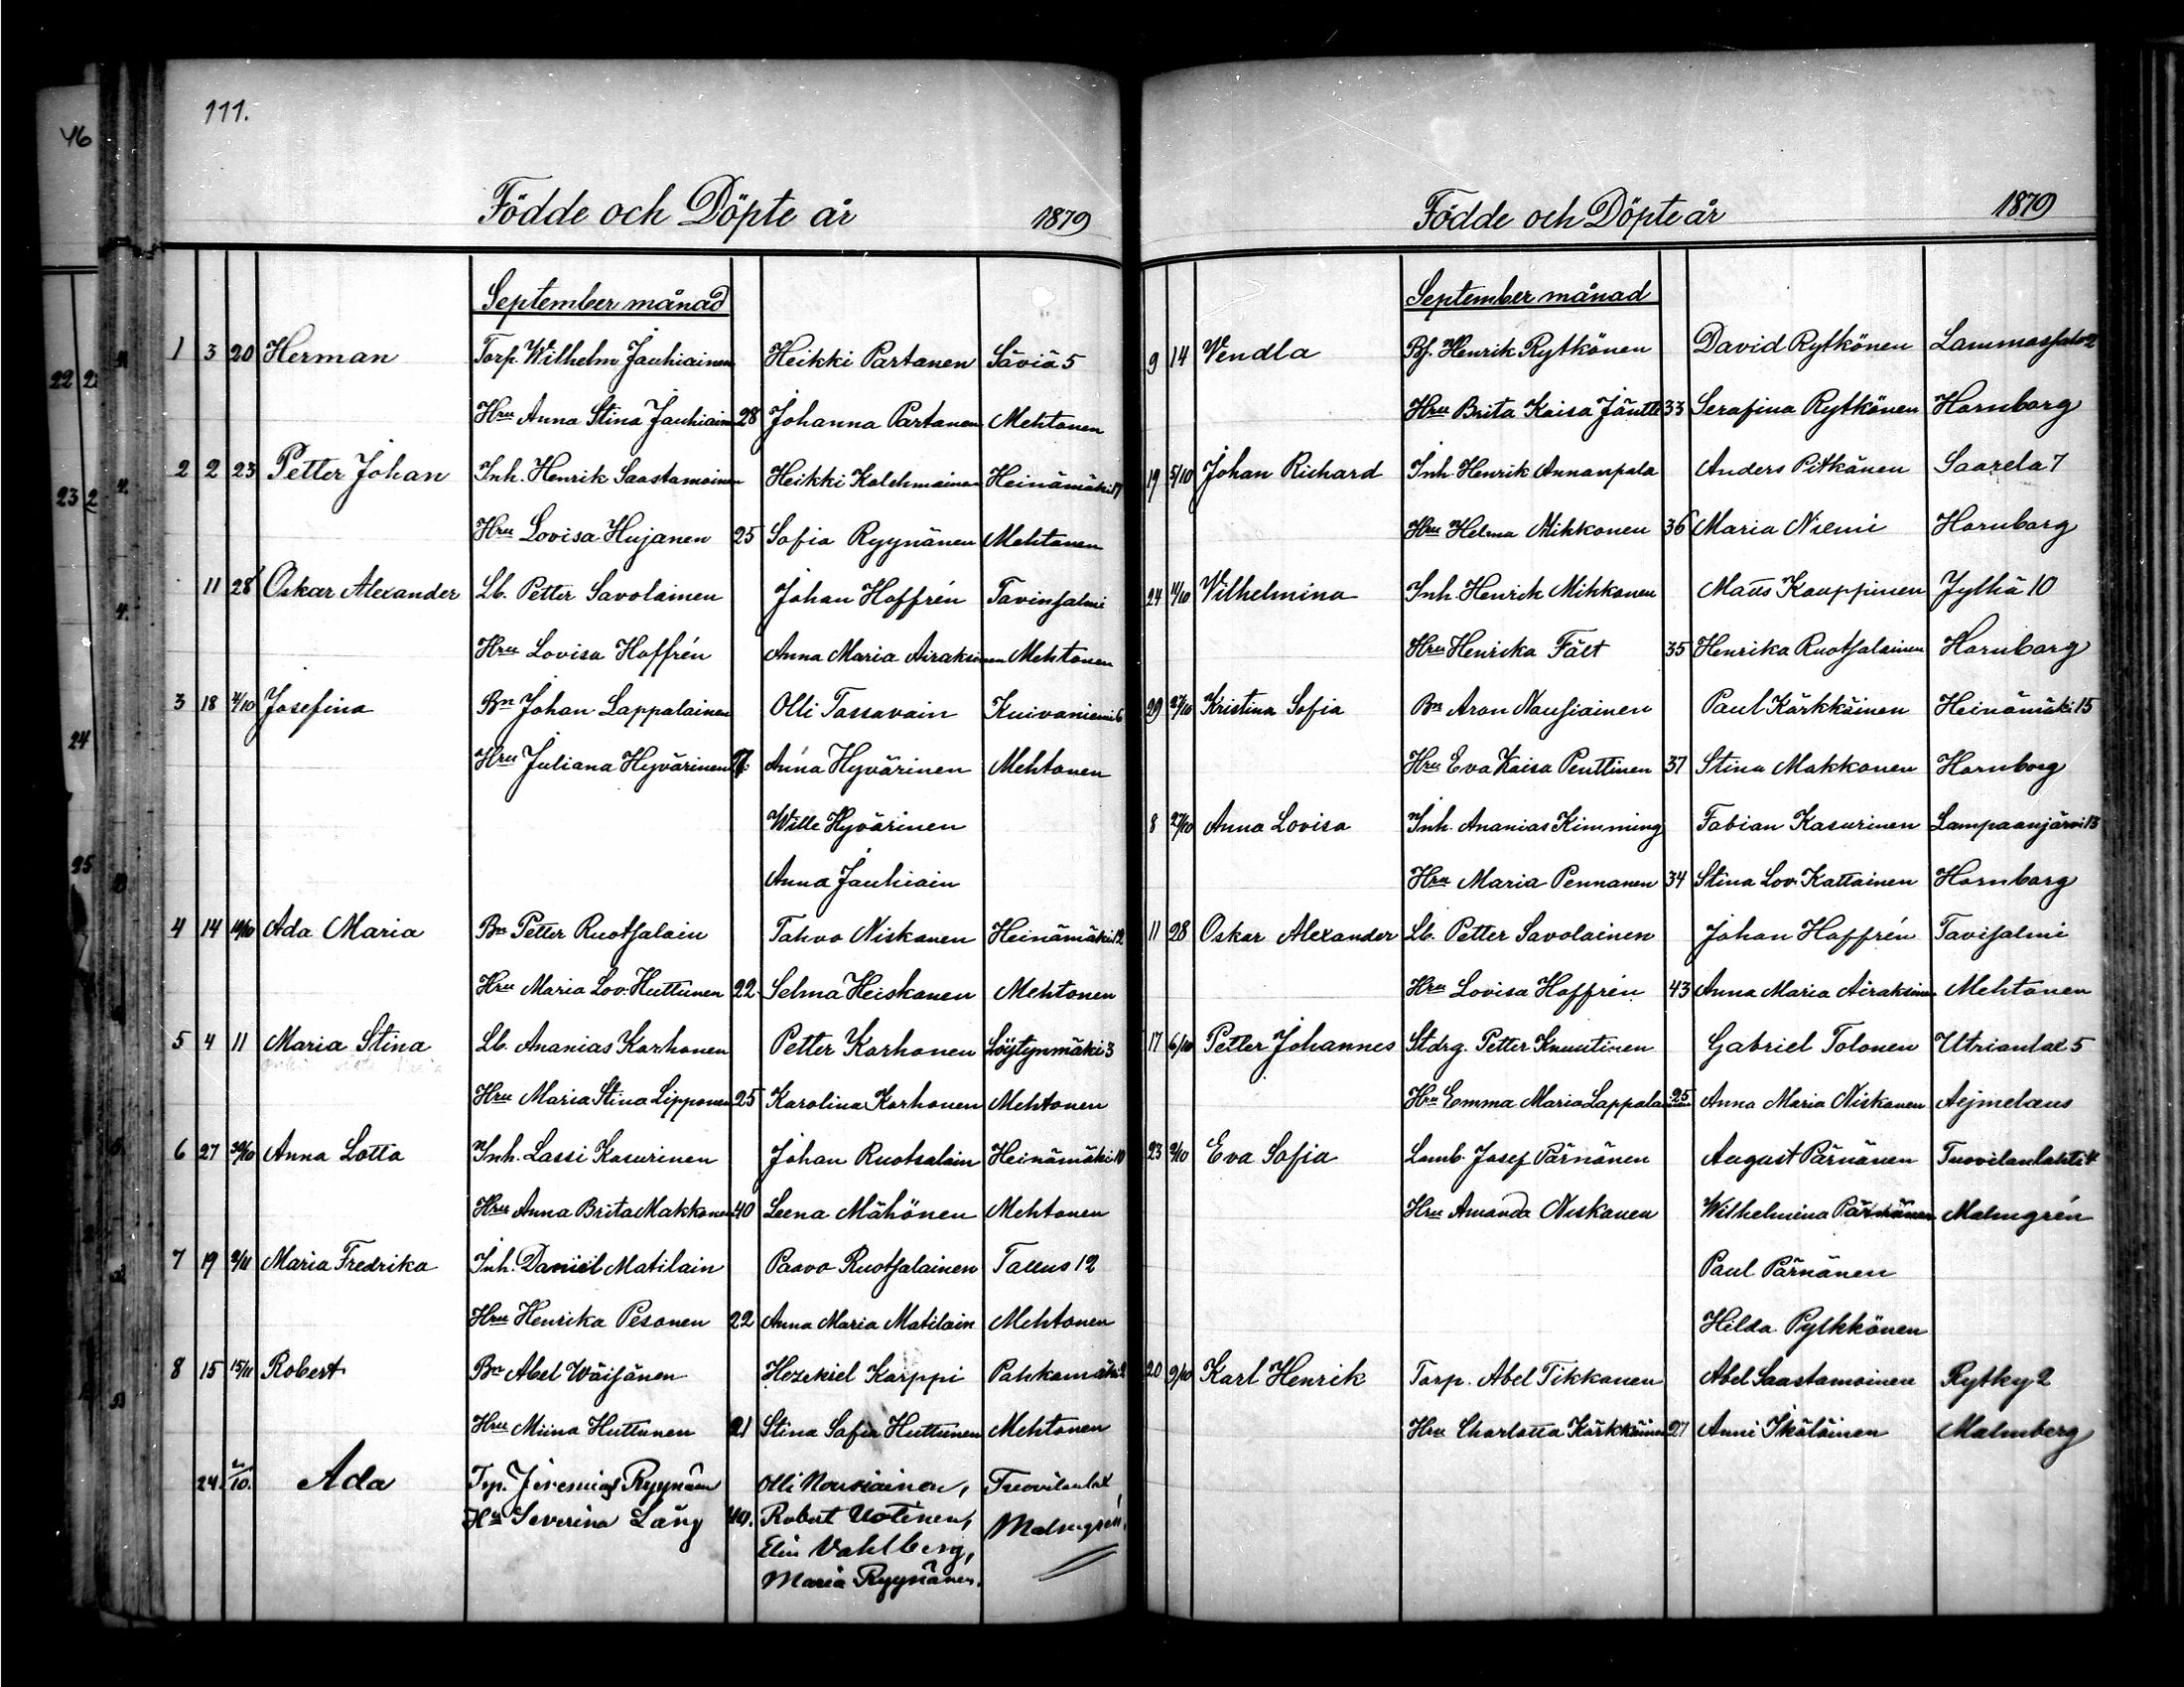 111.
46
Födde och Döpte år 1879
September månad
1 3 20 Herman Torp. Wilhelm Jauhiainen Heikki Partanen Säviä 5
Hru Anna Stina Jauhiainen 28 Johanna Partanen Mehtonen
2 2 23 Petter Johan Inh. Henrik Saastamoinen Heikki Kolehmainen Heinämäki 17
Hru Lovisa Hujanen 25 Sofia Ryynänen Mehtonen
11 28 Oskar Alexander Lb. Petter Savolainen Johan Hoffrén Tavinsalmi
Hru Lovisa Hoffrén Anna Maria Airaksinen Mehtonen
3 18 4/10 Josefina Bn Johan Lappalainen Olli Tassavain Kuivaniemi 6
Hru Juliana Hyvärinen Anna Hyvärinen Mehtonen
Wille Hyvärinen
Anna Jauhiain
4 14 Ada Maria Bn Petter Ruotsalain Tahvo Niskanen Heinämäki 12
Hru Maria Lov. Huttunen 22 Selma Heiskanen Mehtonen
5 4 11 Maria Stina Lb. Ananias Korhonen Petter Korhonen Löytynmäki 3
Hru Maria Stina Lipponen 25 Karolina Korhonen Mehtonen
6 27 Anna Lotta Inh. Lassi Kasurinen Johan Ruotsalain Heinämäki 10
Hru Anna Brita Makkonen 40 Leena Mähönen Mehtonen
7 19 2/11 Maria Fredrika Inh. Daniel Matilain Paavo Ruotsalainen Tallus 12
Hru Henrika Pesonen 22 Anna Maria Matilain Mehtonen
8 15 15/11 Robert Bn Abel Wäisänen Hezekiel Karppi Pahkamäki 2
Hru Miina Huttunen 21 Stina Sofia Huttunen Mehtonen
24. Ada Trp. Jeremias Ryynänen Olli Nousiainen, Tuovilanlax,
Hu Severina Lång 40. Robert Uotinen, Malmgrén.
Elin Vahlberg,
Maria Ryynänen.
Födde och Döpte år 1879
September månad
9 14 Vendla Bf. Henrik Rytkönen David Rytkönen Lammassalo 2
Hru Brita Kaisa Jäntti 33 Serafina Rytkönen Hornborg
19 5/10 Johan Richard Inh. Henrik Annanpala Anders Pitkänen Saarela 7
Hru Helma Mikkonen 36 Maria Niemi Hornborg
24 Wilhelmina Inh. Henrik Mikkonen Maüs Kauppinen Jylhä 10
Hru Henrika Fält 35 Henrika Ruotsalainen Hornborg
29 27/10 Kristina Sofia Bn Aron Nausiainen Paul Kärkkäinen Heinämäki 15
Hru Eva Kaisa Penttinen 37 Stina Makkonen Hornborg
8 27/10 Anna Lovisa Inh. Ananias Kimming Fabian Kasurinen Lampaanjärvi 13
Hru Maria Pennanen 34 Stina Lov. Kattainen Hornborg
11 28 Oskar Alexander Lb. Petter Savolainen Johan Hoffrén Tavisalmi
Hru Lovisa Hoffrén 43 Anna Maria Airaksinen Mehtonen
17 6/10 Petter Johannes Stdrg. Petter Knuutinen Gabriel Tolonen Utrianlax 5
Hru Emma Maria Lappalainen 25 Anna Maria Niskanen Aejmelaus
23 Eva Sofia Lamb. Josef Pärnänen August Pärnänen Tuovilanlahti 4
Hru Amanda Niskanen Wilhelmina Pärnänen Malmgrén
Paul Pärnänen
Hilda Pylkkönen
20 9/10 Karl Henrik Torp. Abel Tikkanen Abel Saastamoinen Rytky 2
Hru Charlotta Kärkkäinen 27 Anni Ikäläinen Malmberg